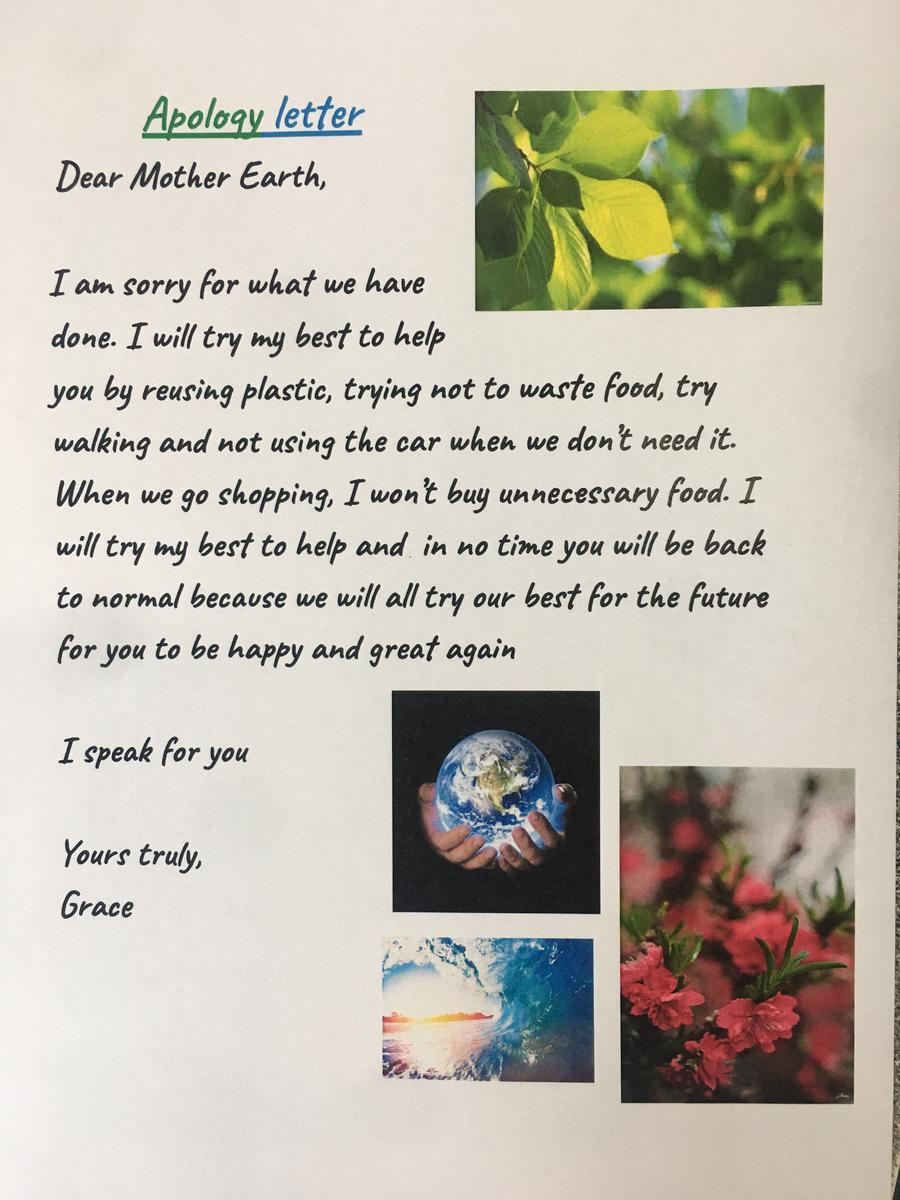 Apology letter
Dear Mother Earth,
I am sorry for what we have
done. I will try my best to help
you by reusing plastic, trying not to waste food, try
walking and not using the car when we don't need it.
When we go shopping, I won't buy unnecessary food. I
will try my best to help and in no time you will be back
to normal because we will all try our best for the future
for you to be happy and great again
I speak for you
Yours truly,
Grace